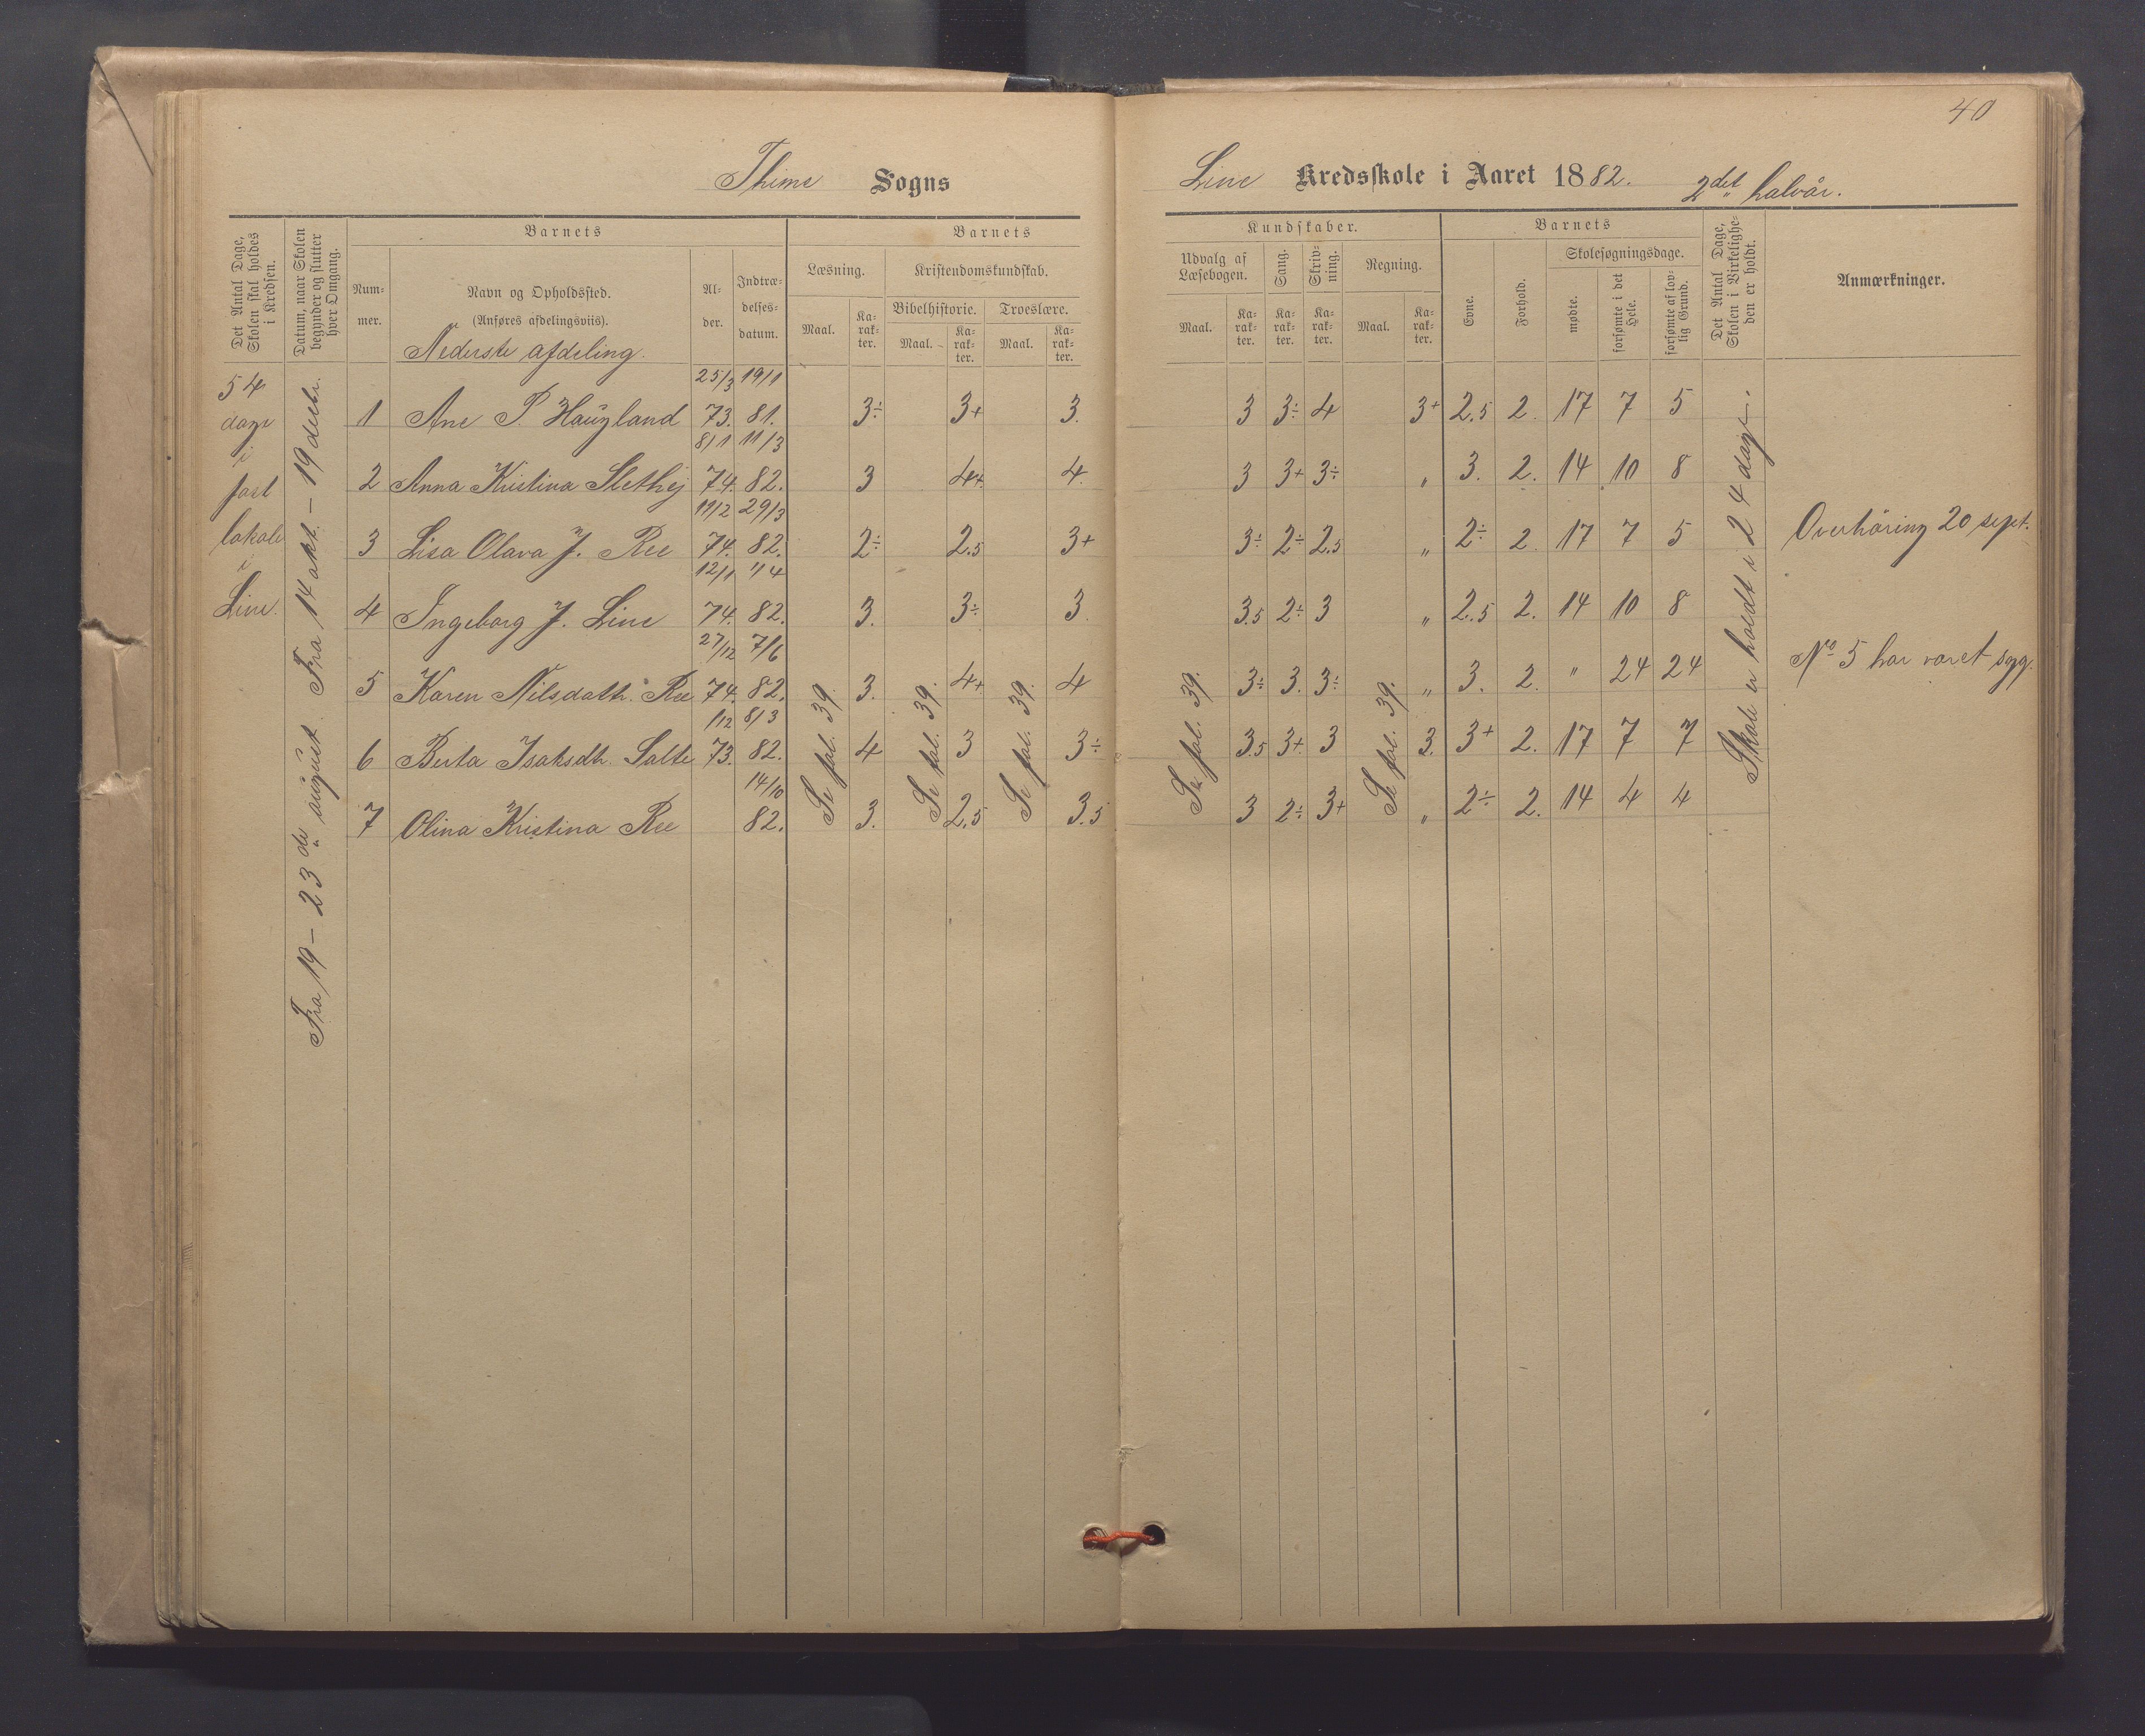 40
Thime Sogns
Line Kredsskole i Aaret 1882. 2det halvår.
Det Antal Dage, Skolen skal holdes i Kredsen.
Datum, naar Skolen begynder og slutter hver Omgang.
Barnets
Num-
mer.
Navn og Opholdssted.
(Anføres afdelingsviis).
Nederste afdeling.
Al-
der.
Indtræ-
delses-
datum.
Barnets
Læsning.
Maal.
Ka-
rak-
ter.
Kristendomskundskab.
Bibelhistorie.
Maal.
Ka-
rak-
ter.
Troeslære.
Maal.
Ka-
rak-
ter.
Kundskaber.
Udvalg af
Læsebogen.
Maal.
Ka-
rak-
ter.
Sang.
Ka-
rak-
ter.
Skriv-
ning.
Ka-
rak-
ter.
Regning.
Maal.
Ka-
rak-
ter.
Barnets
Evne.
Forhold.
Skolesøgningsdage.
mødte.
forsømte i det
Hele.
forsømte af lov-
lig Grund.
Det Antal Dage,
Skolen i Virkelighe-
den er holdt.
Anmærkninger.
54
dage
i
fast
lokale
i
Line.
Fra 19 - 23de august. Fra 14 okt. - 19 decbr.
25/3 19/1
1 Ane P. Haugland 73. 81. 3÷ 3+ 3. 3 3÷ 4 3+ 2.5 2. 17 7 5
8/1 11/3
2 Anna Kristina Slethej 74. 82. 3 4+. 4. 3 3+ 3÷ " 3. 2. 14 10 8
11/2 29/3
3 Lisa Olava J. Ree 74. 82. 2÷ 2.5 3+ 3÷ 2÷ 2.5 " 2÷ 2 17 7 5
12/1 1/4
4 Ingeborg J. Line 74. 82. 3. 3÷ 3 3.5 2÷ 3 " 2.5 2. 14 10 8
27/12 7/6
5 Karen Nilsdatr. Ree 74. 82. 3. 4+ 4 3÷ 3. 3÷ " 3. 2. " 24 24
1/12 8/3
6 Berta Isaksdtr. Salte 73. 82. 4 3 3÷ 3.5 3+ 3 3. 3+ 2. 17 7 7
14/10
7 Olina Kristina Ree 82. 3. 2.5 3.5 3 2÷ 3+ " 2÷ 2. 14 4 4
Se fol. 39.
Se fol. 39.
Se fol. 39.
Se fol. 39.
Se fol. 39.
Skole er holdt i 24 dage.
Overhöring 20 sept.
No 5 har været syg.